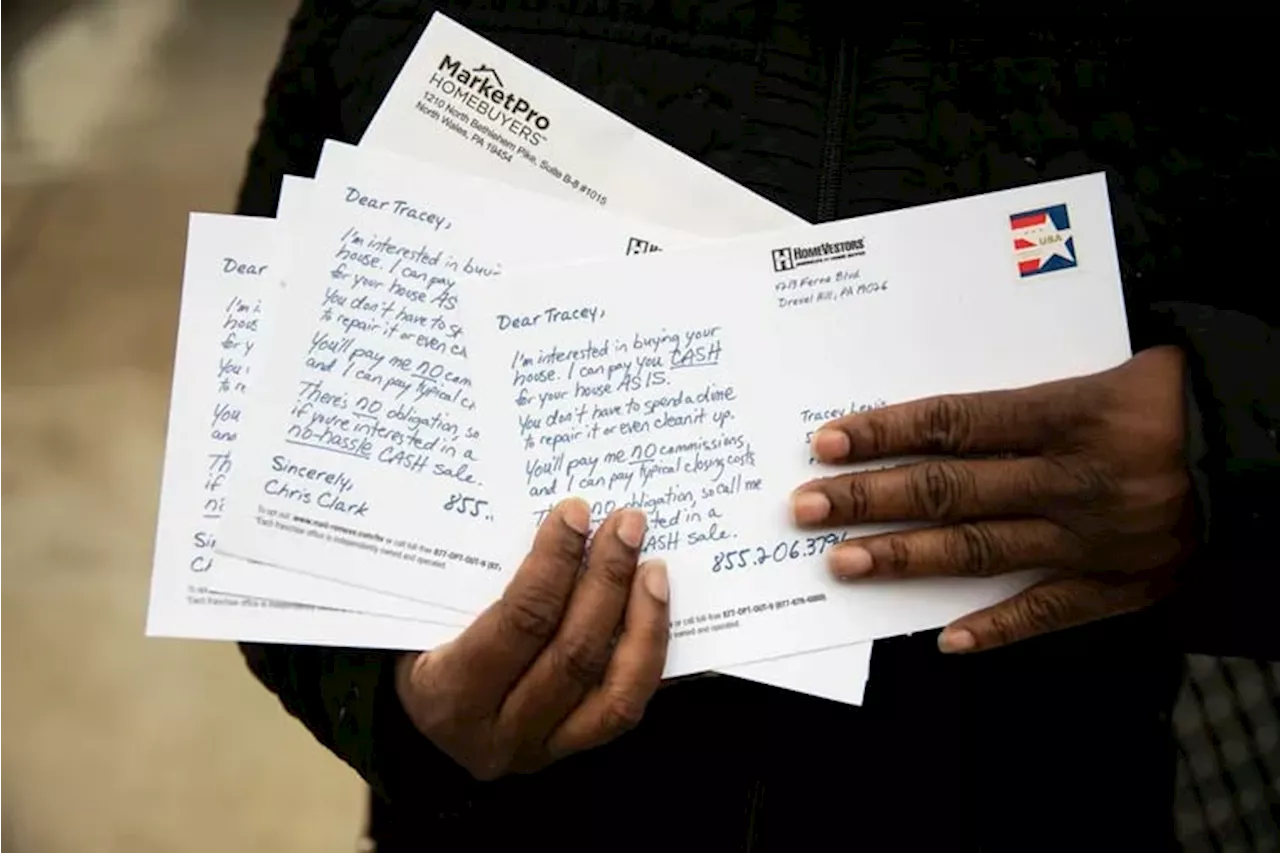 MarketPro
HOMEBUYERS
1210 North Bethlehem Pike, Suite B-8 #1015
North Wales, PA 19454
Dear
I'm i
house
for y
You
to re
You
and
Th
if
ni
Si
Dear Tracey,
I'm interested in buyi
house. I can pay
for your house AS
You don't have to
to repair it or even
You'll pay me no com
and I can pay typical
There's no obligation, so
if you're interested in a
no-hassle CASH sale.
Sincerely,
Chris Clark
855.
To opt out: or call toll-free 877-OPT-OUT-9
Each franchise office is independently owned and operated.
HOMEVESTORS
Drexel Hill, PA 19026
USA
Dear Tracey,
I'm interested in buying your
house. I can pay you CASH
for your house AS IS.
You don't have to spend a dime
to repair it or even clean it up.
You'll pay me no commissions
and I can pay typical closing costs
no obligation, so call me
ted in a
CASH sale.
855.206.379
or call toll-free 877-OPT-OUT-9 (877-678-6889)
owned and operated.
Tracey